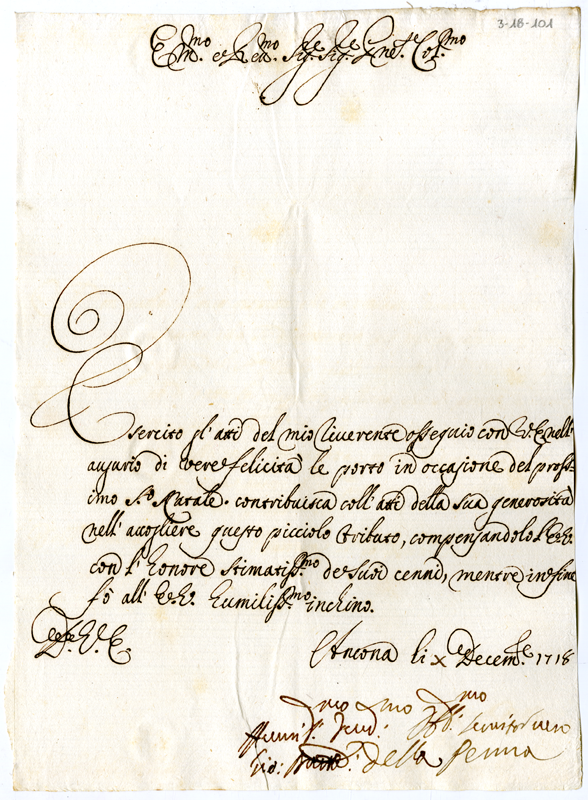 3-18-101
Em.mo e Rev.mo Sig.re Sig.re Pne Col.mo
Esercito gl'atti del mio riverente ossequio con V.E. nell'
augurio di vere felicità le porto in occasione del prossi
imo S.to Natale. contribuisca coll'atti della sua generosità
nell'accogliere questo picciolo tributo, compensandolo l'E.V.
con l'honore stimatiss.mo de suoi cenni, mentre in fine
fò all'E.V. humiliss.mo inchino.
D. V. E.
Ancona li x Decem.re 1718
Humil.mo Dev.mo Obb.mo Servitor vero
Gio: della Penna